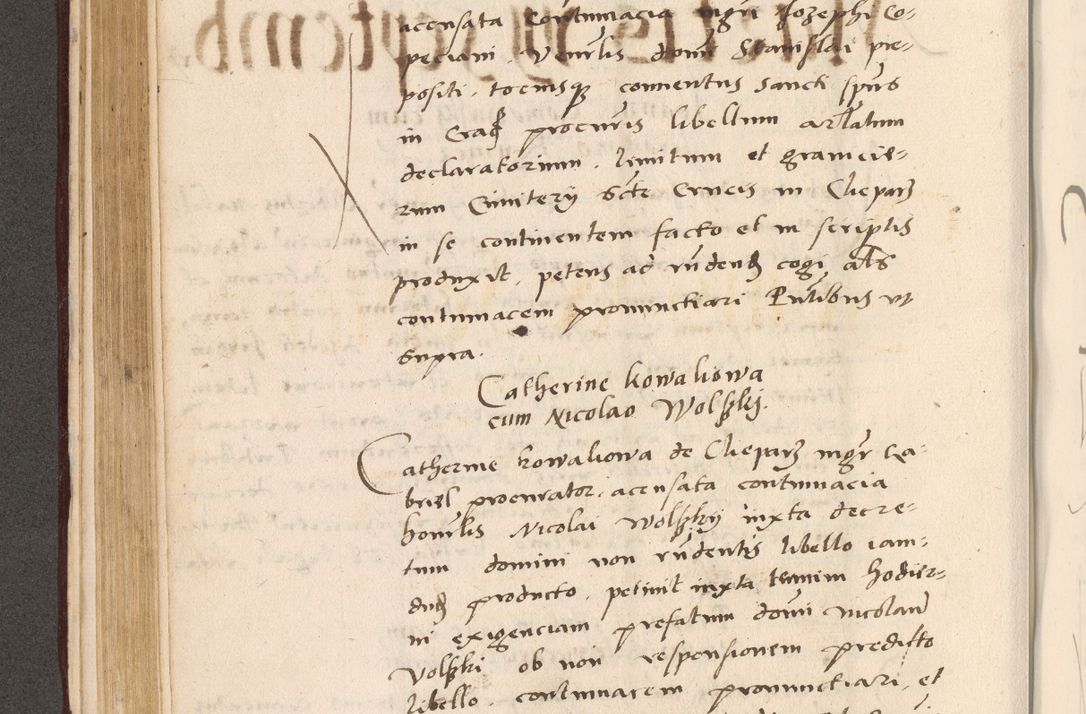 acensata Contumacia mgri Josephi Co-
peciani. Venerlis domi Stanislai pre-
positi. tociusq conuentus Sancti spus
in Crac procuris libellum artlatum
declaratorium. limitum et granicie-
rum Cimiterij Scte Crucis in Clepars
in se continentem facto et in scriptis
produxit. petens ad rndend cogi als
contumacem pronunctiari Pntibus vt
supra.
Catherine Kowaliowa
cum Nicolao Wolski.
Catherine Kowaliowa de Clepars mgr Ga-
briel procurator. acensata contumacia
honrlis Nicolai Wolskij iuxta decre-
tum domini non rndentis libello iam-
dud producto. petiuit iuxta termini hodier-
ni exigenciam prefatum domi Nicolaum
Volski ob non responsionem predicto
libello. contumacem pronunctiari. et